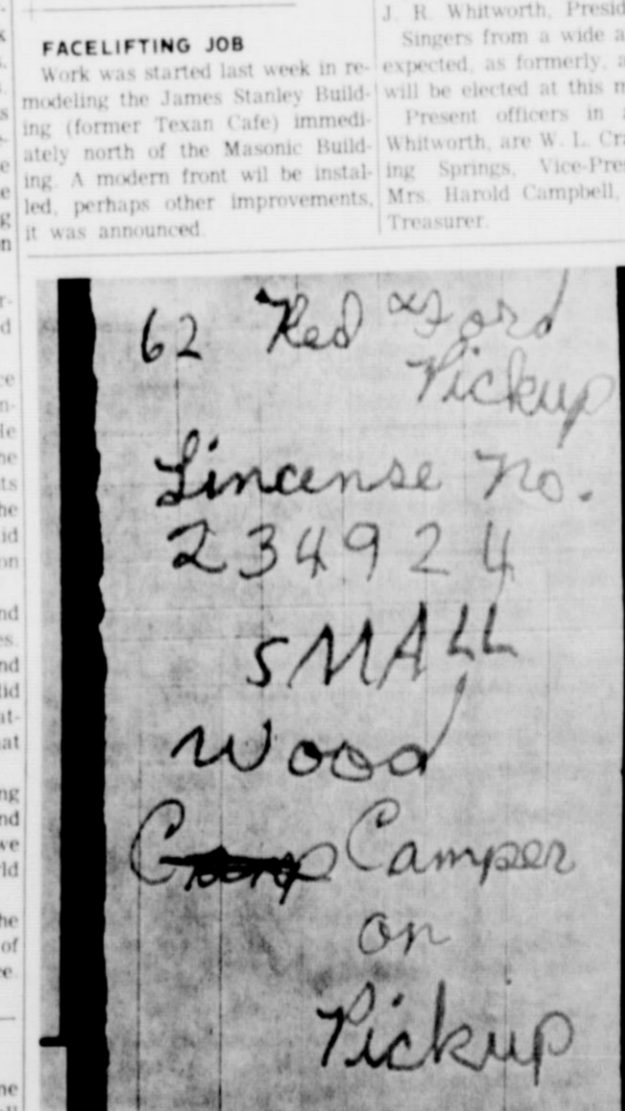 FACELIFTING JOB
Work was started last week in re-
modeling the James Stanley Build-
ing (former Texan Cafe) immedi-
ately north of the Masonic Build-
ing. A modern front wil be instal-
led, perhaps other improvements,
it was announced.
J. R. Whitworth, Presid
Singers from a wide a
expected, as formerly, a
will be elected at this m
Present officers in
Whitworth, are W. L. Cra
ing Springs, Vice-Pres
Mrs. Harold Campbell,
Treasurer.
62 Red Ford
Pickup
Lincense No.
234924
SMALL
Wood
Camper
on
Pickup